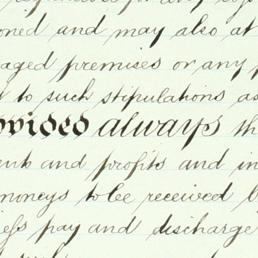 oned and may also at
aged premises or any p
t to such stipulations as
ovided always th
ents and profits and in
moneys to be received b
iefs pay and discharge